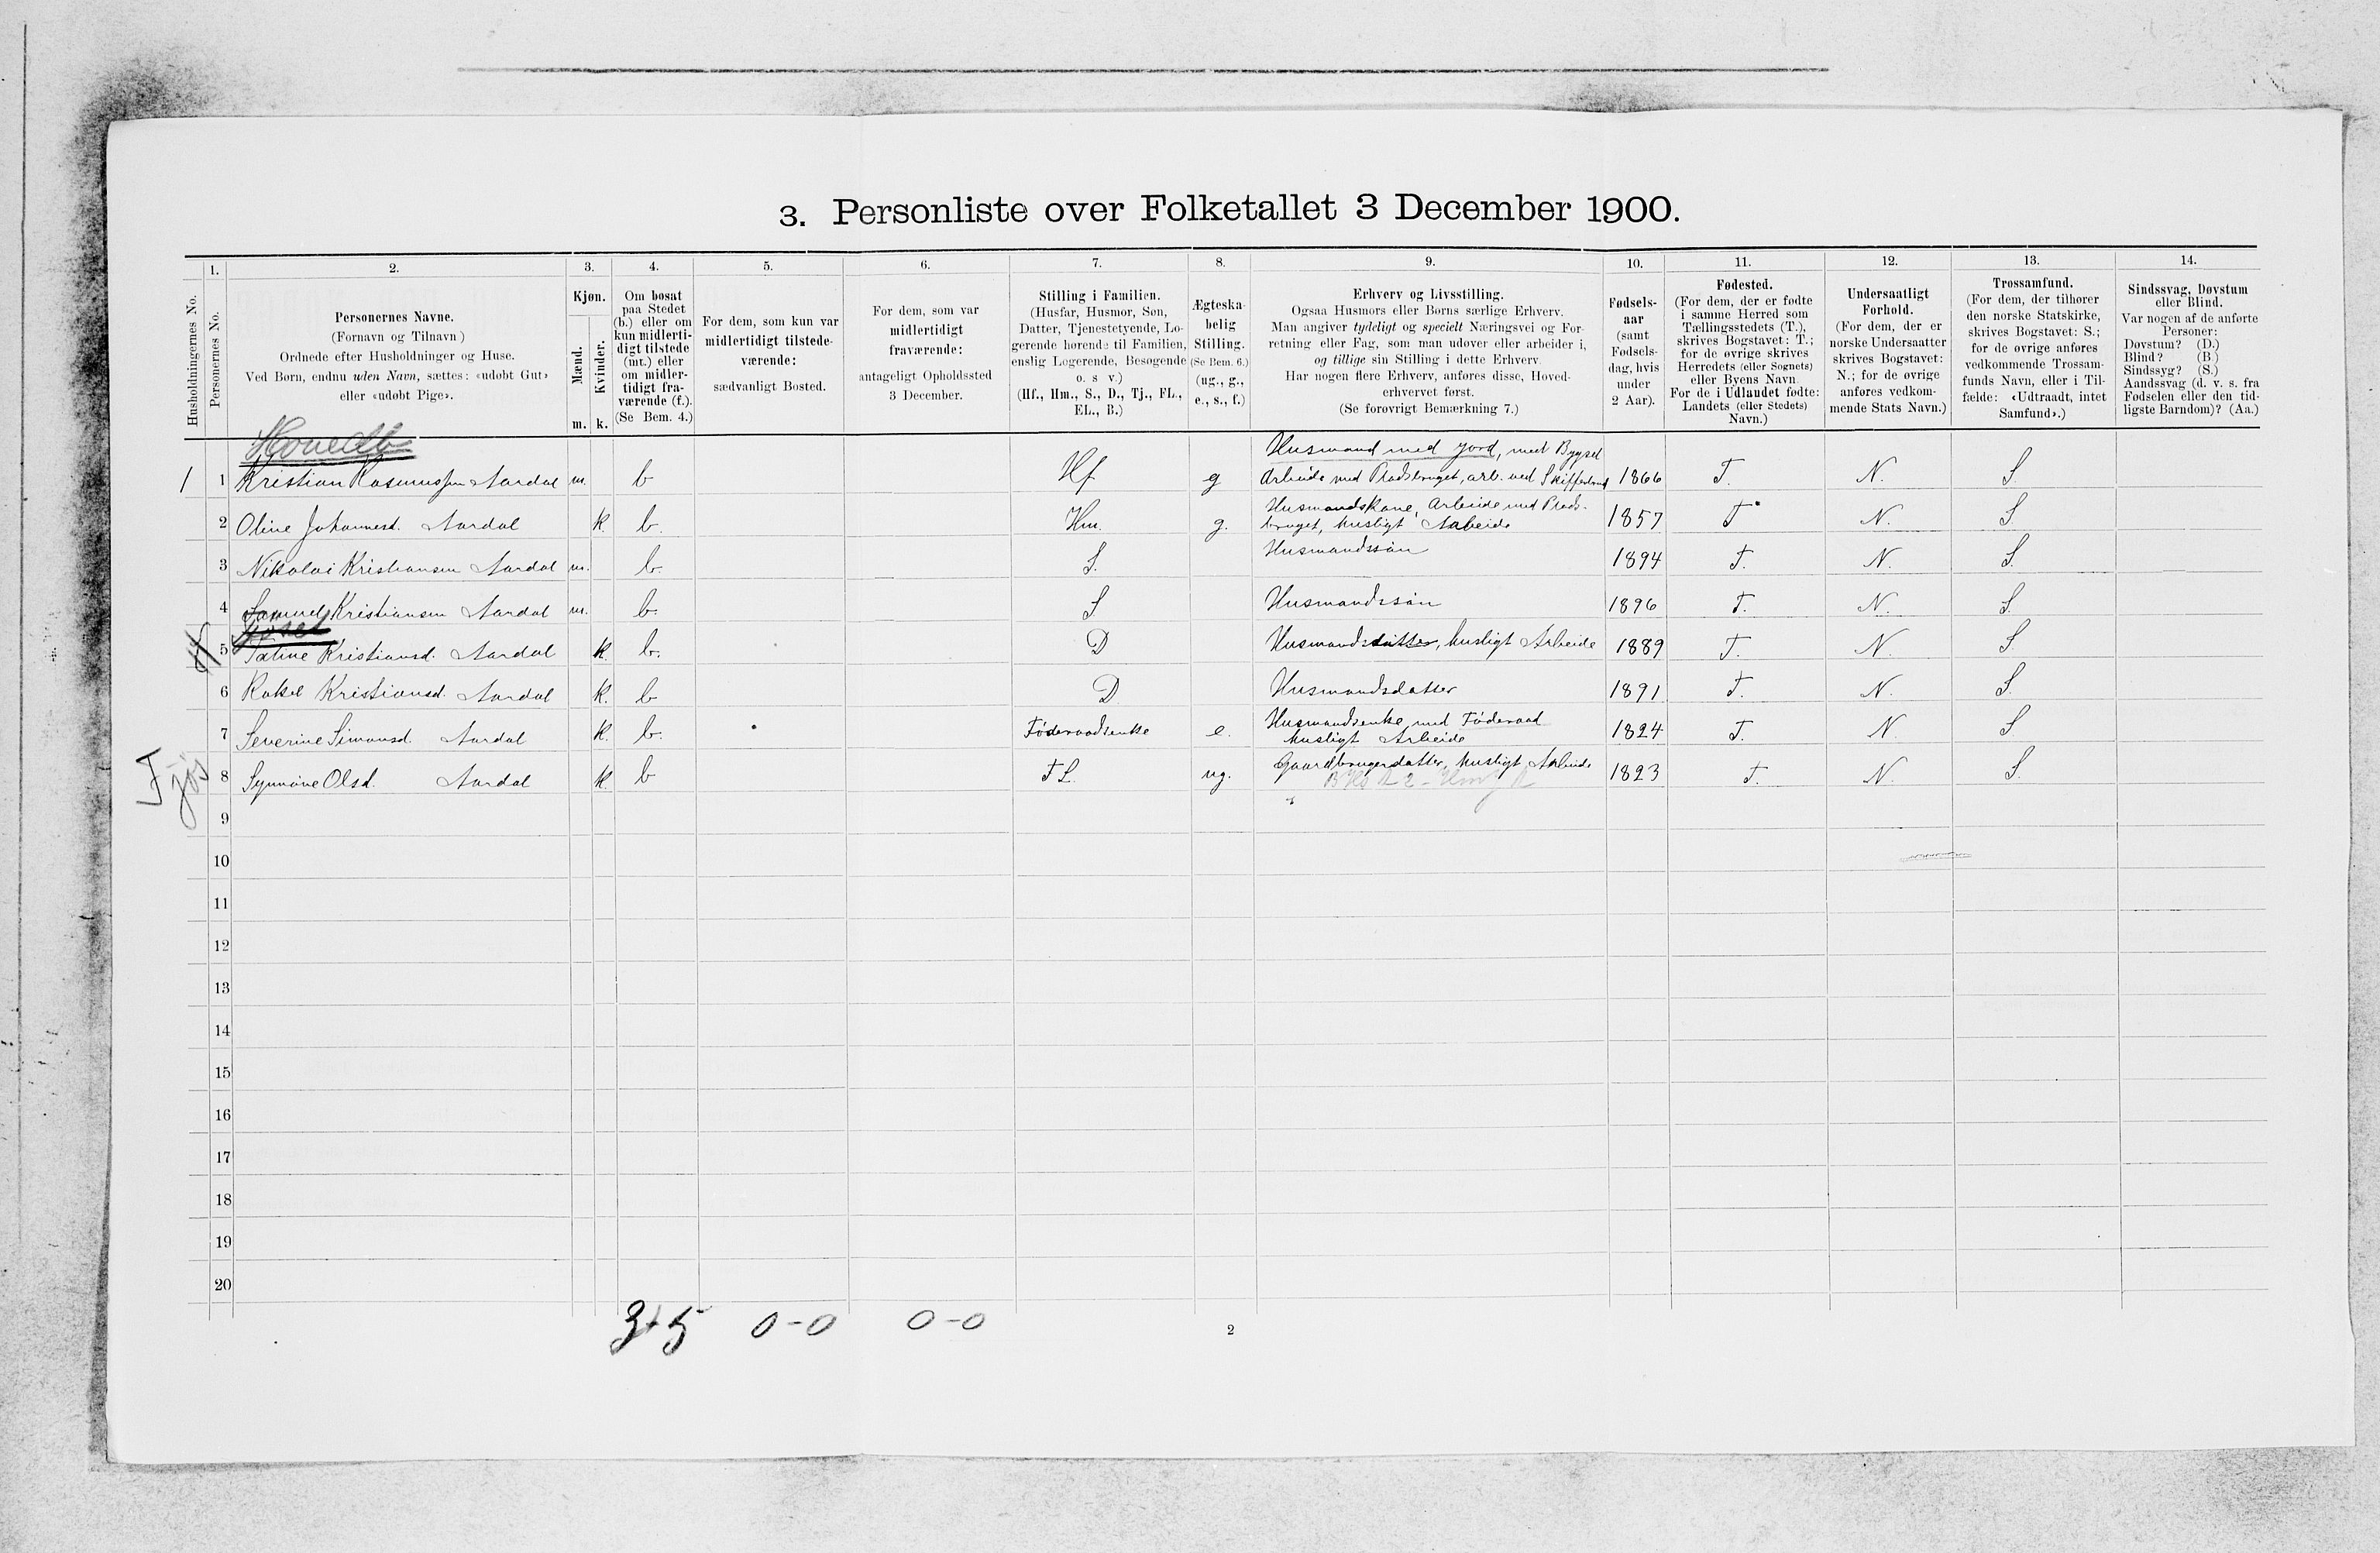 3. Personliste over Folketallet 3 December 1900.
1. 2. 3. 4. 5. 6. 7. 8. 9. 10. 11. 12. 13. 14.
Husholdningernes No.
Personernes No.
Personernes Navne.
(Fornavn og Tilnavn)
Ordnede efter Husholdninger og Huse.
Ved Børn, endnu uden Navn, sættes: «udøbt Gut»
eller «udøbt Pige».
Kjøn.
Mænd.
Kvinder.
m. k.
Om bosat
paa Stedet
(b.) eller om
kun midlerti-
digt tilstede
(mt.) eller
om midler-
tidigt fra-
værende (f.).
(Se Bem. 4.)
For dem, som kun var
midlertidigt tilstede-
værende:
sædvanligt Bosted.
For dem, som var
midlertidigt
fraværende:
antageligt Opholdssted
3 December.
Stilling i Familien.
(Husfar, Husmor, Søn,
Datter, Tjenestetyende, Lo-
gerende hørende til Familien,
enslig Logerende, Besøgende
o. s. v.)
(Hf., Hm., S., D., Tj., FL.,
EL., B.)
Ægteska-
belig
Stilling.
(Se Bem. 6.)
(ug., g.,
e., s., f.)
Erhverv og Livsstilling.
Ogsaa Husmors eller Børns særlige Erhverv.
Man angiver tydeligt og specielt Næringsvei og For-
retning eller Fag, som man udøver eller arbeider i,
og tillige sin Stilling i dette Erhverv.
Har nogen flere Erhverv, anføres disse, Hoved-
erhvervet først.
(Se forøvrigt Bemærkning 7.)
Fødsels-
aar
(samt
Fødsels-
dag, hvis
under
2 Aar).
Fødested.
(For dem, der er fødte
i samme Herred som
Tællingsstedets (T.),
skrives Bogstavet: T.;
for de øvrige skrives
Herredets (eller Sognets)
eller Byens Navn.
For de i Udlandet fødte:
Landets (eller Stedets)
Navn.)
Undersaatligt
Forhold.
(For dem, der er
norske Undersaatter
skrives Bogstavet:
N.; for de øvrige
anføres vedkom-
mende Stats Navn.)
Trossamfund.
(For dem, der tilhører
den norske Statskirke,
skrives Bogstavet: S.;
for de øvrige anføres
vedkommende Trossam-
funds Navn, eller i Til-
fælde: «Udtraadt, intet
Samfund».)
Sindssvag, Døvstum
eller Blind.
Var nogen af de anførte
Personer:
Døvstum? (D.)
Blind? (B.)
Sindssyg? (S.)
Aandssvag (d. v. s. fra
Fødselen eller den tid-
ligste Barndom)? (Aa.)
Hovedb
Husmand med jord, med Bygsel
1 1 Kristian Rasmussen Aardal m. b Hf g Arbeide med Pladsbruget, arb. ved 1866 T. N. S
Husmandskone, Arbeide med Plads-
2 Oline Johannesd. Aardal k b. Hm. g. bruget, husligt Arbeide 1857 T N. S.
3 Nikolai Kristiansen Aardal m. b. S. Husmandssøn 1894 T. N. S.
4 Samuel Kristiansen Aardal m. b. S Husmandssøn 1896 T. N. S.
5 Taline Kristiansd. Aardal k. b. D Husmandsdatter, husligt Arbeide 1889 T. N. S.
6 Rakel Kristiansd. Aardal k. b D Husmandsdatter 1891 T. N. S.
Husmandsenke med Føderaad
7 Severine Simonsd. Aardal k. b. Føderaadsenke e. husligt Arbeide 1824 T. N. S
8 Synnøve Olsd. Aardal k. b FL. ug. Gaardbrugerdatter, husligt Arbeide 1823 T. N. S.
9
10
11
12
13
14
15
16
17
18
19
20
3+5 0-0 0-0
2